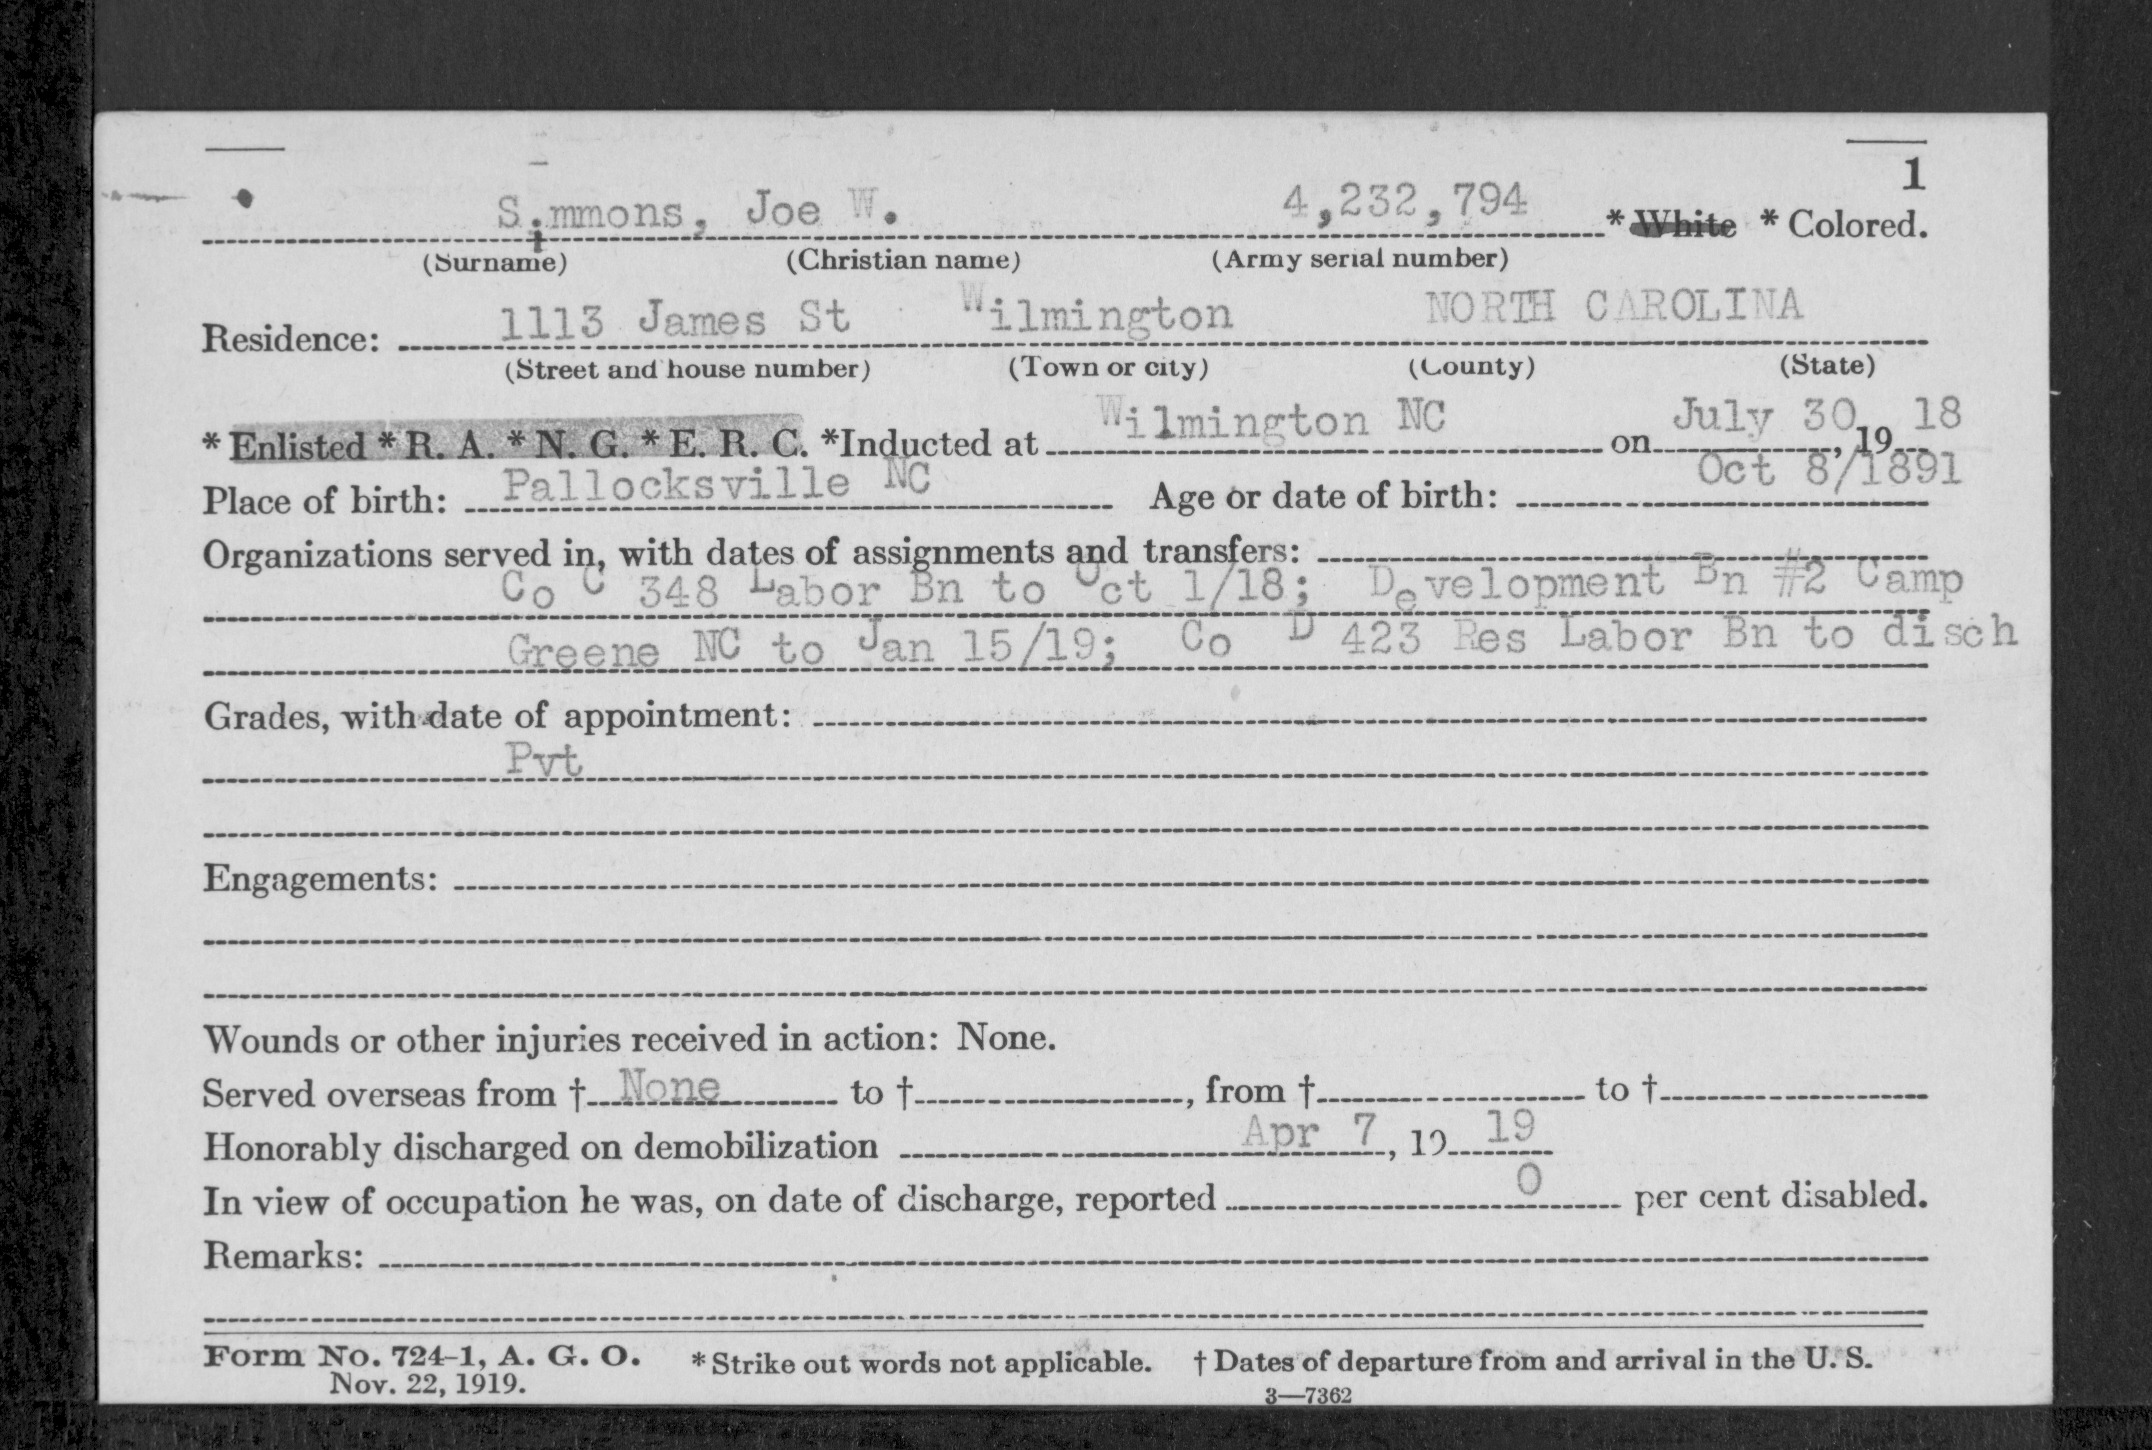 1
Simmons, Joe W. 4,232,794 * White * Colored.
(Surname) (Christian name) (Army serial number)
Residence: 1113 James St Wilmington NORTH CAROLINA
(Street and house number) (Town or city) (County) (State)
* Enlisted * R. A. * N. G. * E. R. C. *Inducted at Wilmington NC on July 30, 19 18
Place of birth: Pallocksville NC Age or date of birth: Oct 8/1891
Organizations served in, with dates of assignments and transfers:
Co C 348 Labor Bn to Oct 1/18; Development Bn #2 Camp
Greene NC to Jan 15/19; Co D 423 Res Labor Bn to disch
Grades, with date of appointment:
Pvt
Engagements:
Wounds or other injuries received in action: None.
Served overseas from † None to †, from † to †
Honorably discharged on demobilization Apr 7, 19 19
In view of occupation he was, on date of discharge, reported 0 per cent disabled.
Remarks:
Form No. 724-1, A. G. O. * Strike out words not applicable. † Dates of departure from and arrival in the U. S.
Nov. 22, 1919. 3—7362